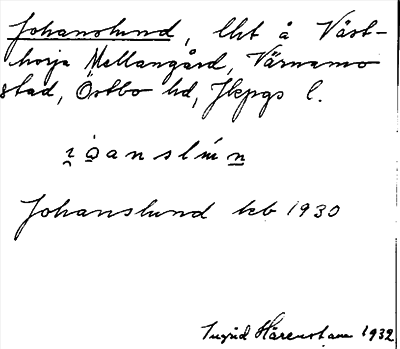 Johanslund, lht å Väst-
horja Mellangård, Värnamo
stad, Östbo hd, Jkpgs l.
i̯ o̯anslúṉ
Johanslund kb 1930
Ingrid Härenstam 1932